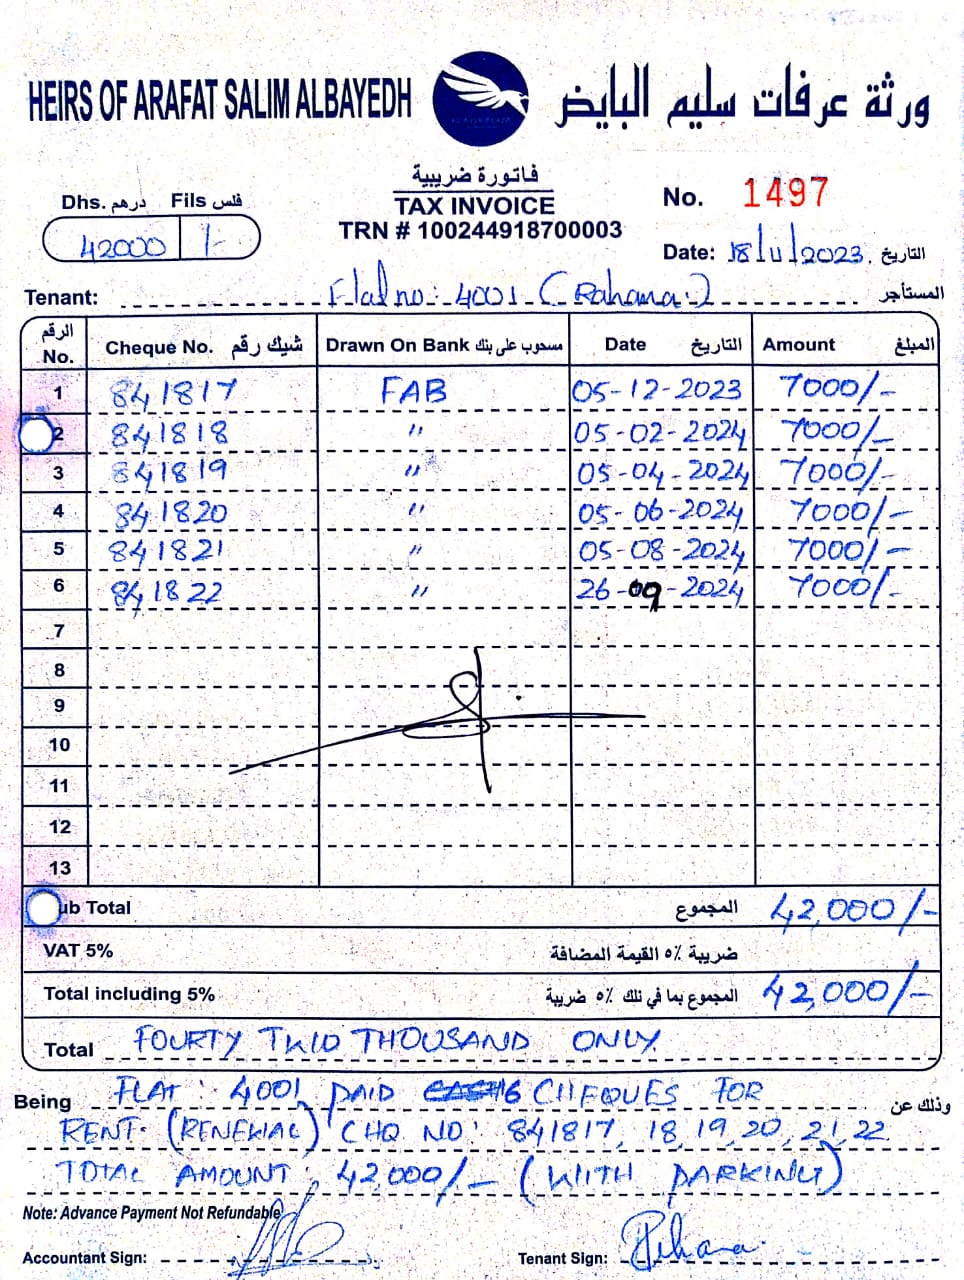 HEIRS OF ARAFAT SALIM ALBAYEDH ورثة عرفات سليم البايض
فاتورة ضريبية
TAX INVOICE
TRN # 100244918700003
Dhs. درهم Fils فلس
42000 /-
No. 1497
Date: 18/11/2023. التاريخ
Tenant: Flat no: 4001 (Rahana.) المستأجر
الرقم No. Cheque No. شيك رقم Drawn On Bank مسحوب على بنك Date التاريخ Amount المبلغ
1 841817 FAB 05-12-2023 7000/-
2 841818 " 05-02-2024 7000/-
3 841819 " 05-04-2024 7000/-
4 841820 " 05-06-2024 7000/-
5 841821 " 05-08-2024 7000/-
6 841822 " 26-09-2024 7000/-
7
8
9
10
11
12
13
ub Total المجموع 42,000/-
VAT 5% ضريبة ٥٪ القيمة المضافة
Total including 5% المجموع بما في تلك ٥٪ ضريبة 42,000/-
Total FOURTY TWO THOUSAND ONLY.
Being FLAT: 4001 PAID 6 CHEQUES FOR وذلك عن
RENT. (RENEWAL) CHQ NO: 841817, 18, 19, 20, 21, 22
TOTAL AMOUNT: 42,000/- (WITH PARKING)
Note: Advance Payment Not Refundable
Accountant Sign: Tenant Sign: Rehana